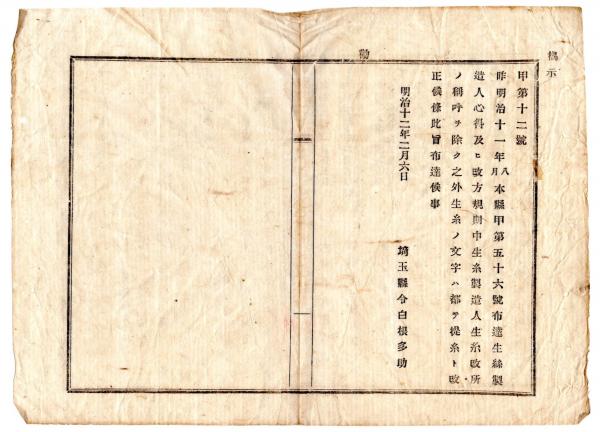 掲示
勸
甲第十二號
昨明治十一年八月本縣甲第五十六號布達生絲製
造人心得及ヒ改方規則中生糸製造人生糸改所
ノ稱呼ヲ除ク之外生糸ノ文字ハ都テ提糸ト改
正候條此旨布達候事
明治十二年二月六日
埼玉縣令白根多助